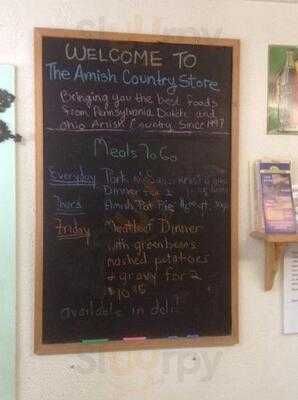 WELCOME TO
The Amish Country Store
Bringing you the best foods
from Pennsylvania Dutch and
Ohio Amish Country Since 1997
Meals To Go
Everyday Pork
Dinner for 2
Thurs Amish Pot Pie
Friday Meatloaf Dinner
with greenbeans
mashed potatoes
& gravy for 2
$10.95
available in deli!
Sluurpy